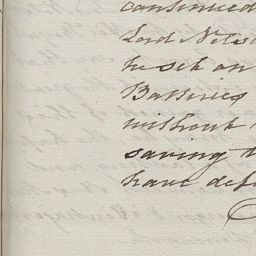 continued
Lord Nels
he set on
Batteries
without
saving t
have def